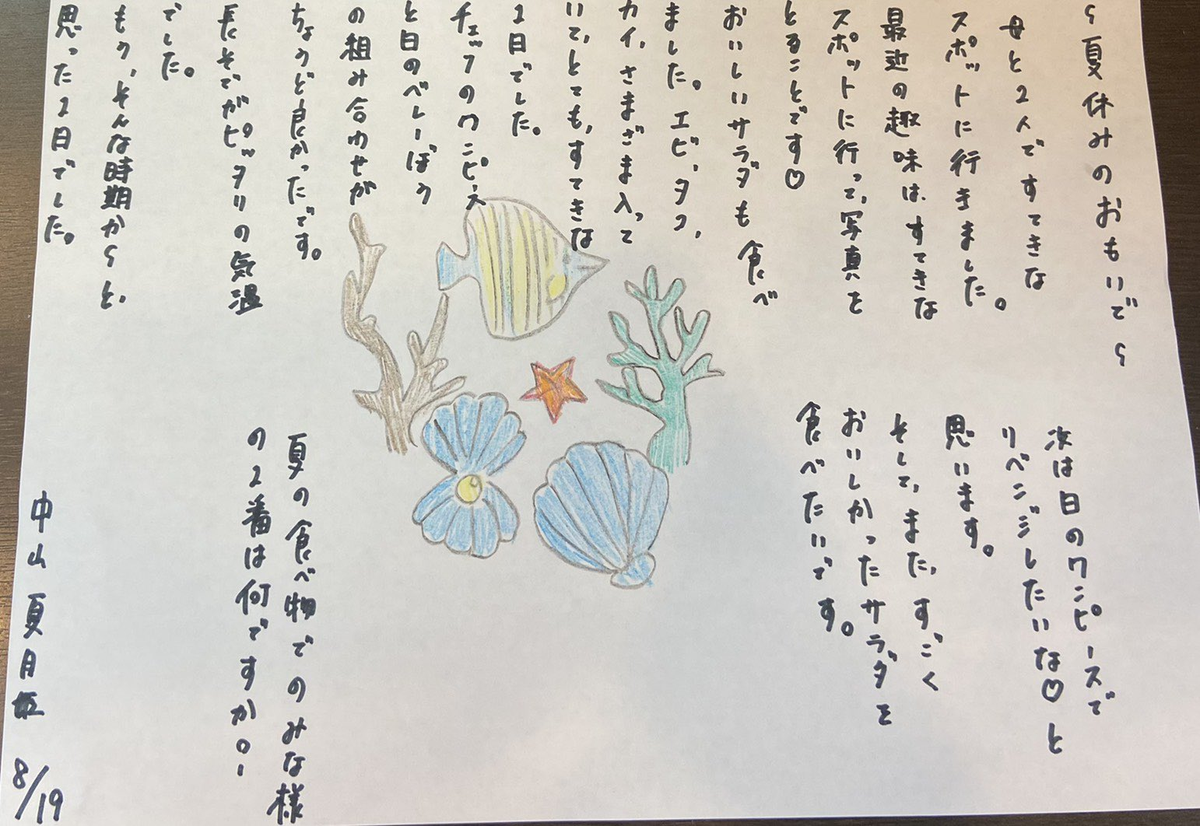 ～夏休みのおもいで～
母と2人ですてきな
スポットに行きました。
最近の趣味は、すてきな
スポットに行って、写真を
とることです♡
おいしいサラダも食べ
ました。エビ、タコ、
カイ、さまざま入って
いて、とても、すてきな
1日でした。
チェックのワンピース
と白のベレーぼう
の組み合わせが
ちょうど良かったです。
長そでがピッタリの気温
でした。
もう、そんな時期か～と、
思った1日でした。
次は白のワンピースで
リベンジしたいな♡と
思います。
そして、また、すごく
おいしかったサラダを
食べたいです。
夏の食べ物でのみな様
の1番は何ですか。
中山夏月姫 8/19